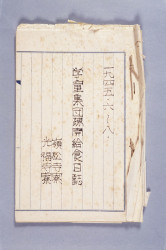 一九四五・六ー八・
学童集団疎開給食日誌
光福寺寮